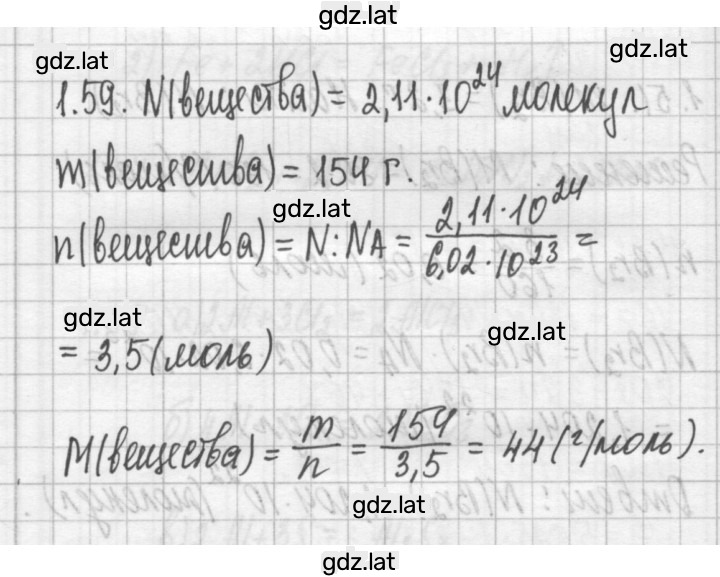 gdz.lat
gdz.lat
gdz.lat
1.59. N(вещества) = 2,11·10²⁴ молекул
m(вещества) = 154 г.
gdz.lat
n(вещества) = N:NA = 2,11·10²⁴ / 6,02·10²³ =
gdz.lat
gdz.lat
= 3,5 (моль)
M(вещества) = m/n = 154/3,5 = 44 (г/моль).
gdz.lat
gdz.lat